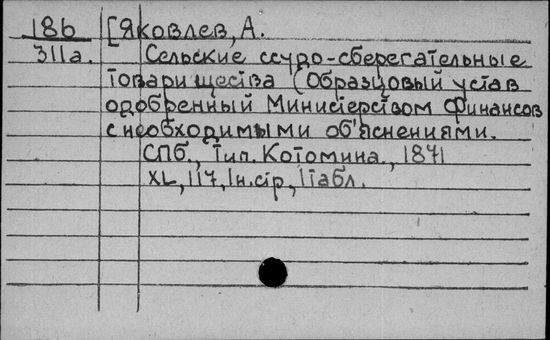 186 [Яковлев, А.
311а. Сельские ссудо-сберегательные
товарищества (Образцовый устав
одобренный Министерством Финансов
с необходимыми об'яснениями.
СПб., Тип. Котомина., 1871
XL, 117, 1н.стр, 1табл.